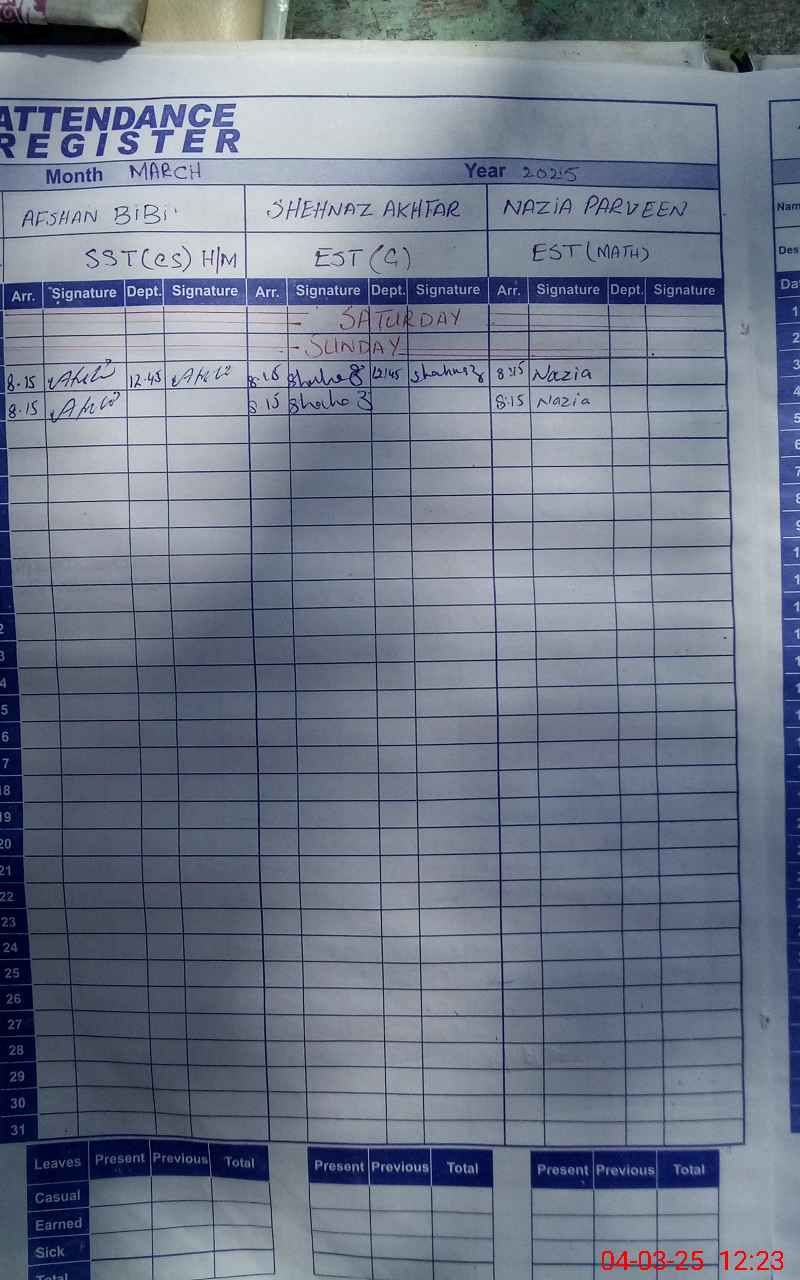 ATTENDANCE
REGISTER
Month MARCH Year 2025
AFSHAN BIBI SHEHNAZ AKHTAR NAZIA PARVEEN Nam
SST(CS) H/M EST (G) EST (MATH) Des
Arr. Signature Dept. Signature Arr. Signature Dept. Signature Arr. Signature Dept. Signature Da
SATURDAY 1
SUNDAY 2
8.15 12.45 8.15 12.45 8.15 Nazia 3
8.15 8.15 8.15 Nazia 4
5
6
7
8
9
2
3
4
5
6
7
18
19
20
21
22
23
24
25
26
27
28
29
30
31
Leaves Present Previous Total Present Previous Total Present Previous Total
Casual
Earned
Sick
Total
04-03-25 12:23